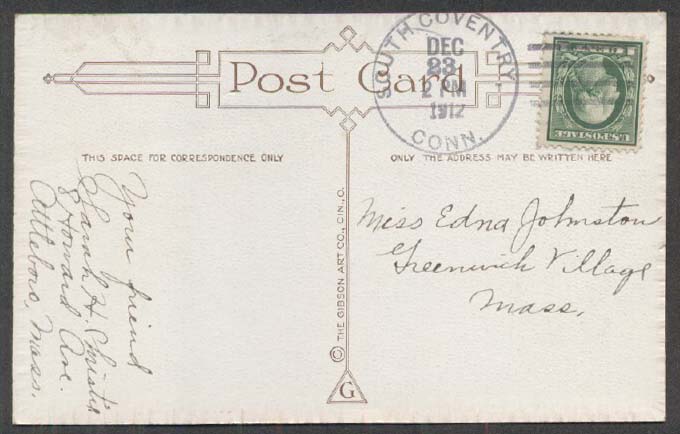 Post Card
SOUTH COVENTRY
DEC
23
2 PM
1912
CONN.
U.S. POSTAGE
THIS SPACE FOR CORRESPONDENCE ONLY
ONLY THE ADDRESS MAY BE WRITTEN HERE
Your friend
Sarah H. Christie
8 Howard Ave.
Attleboro, Mass.
© THE GIBSON ART CO., CIN., O.
G
Miss Edna Johnston
Greenwich Village
Mass.